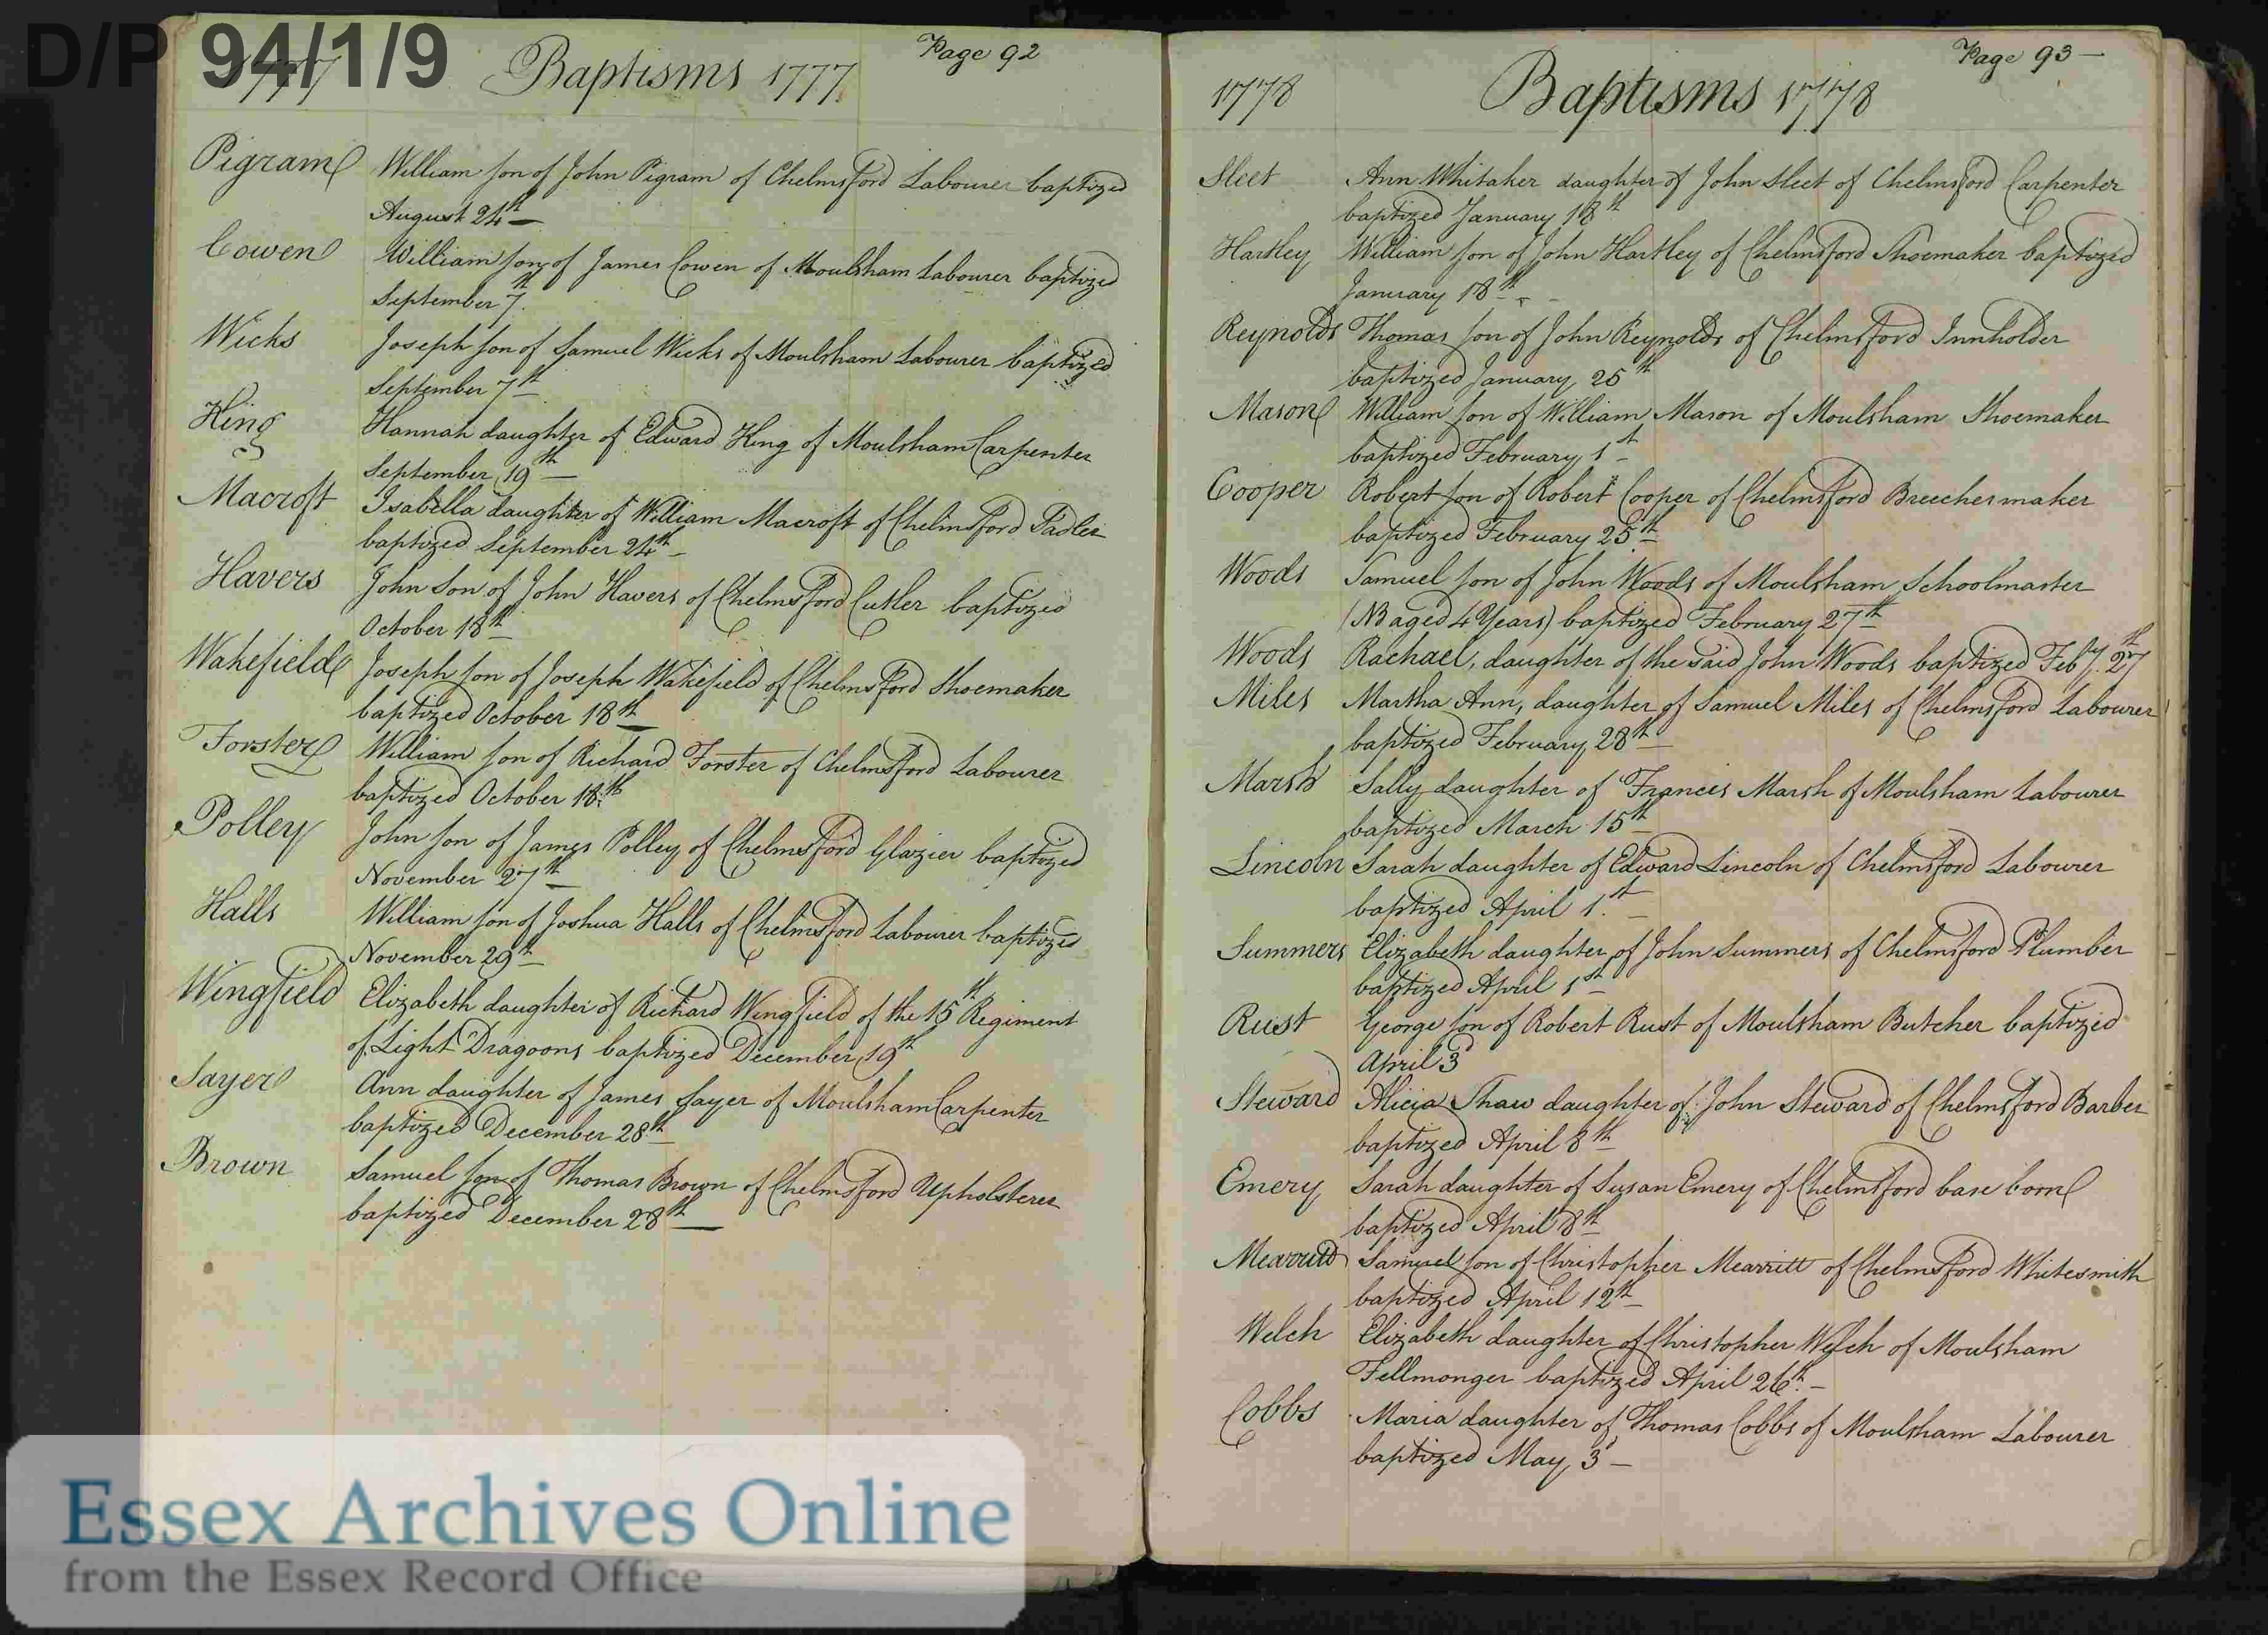 D/P 94/1/9
1777 Baptisms 1777 Page 92
Pigram William son of John Pigram of Chelmsford Labourer baptized
August 24th
Cowen William son of James Cowen of Moulsham Labourer baptized
September 7th
Wicks Joseph son of Samuel Wicks of Moulsham Labourer baptized
September 7th
King Hannah daughter of Edward King of Moulsham Carpenter
September 19th
Macroft Isabella daughter of William Macroft of Chelmsford Sadler
baptized September 24th
Havers John Son of John Havers of Chelmsford Cutler baptized
October 18th
Wakefield Joseph son of Joseph Wakefield of Chelmsford Shoemaker
baptized October 18th
Forster William son of Richard Forster of Chelmsford Labourer
baptized October 18th
Polley John son of James Polley of Chelmsford Glazier baptized
November 27th
Halls William son of Joshua Halls of Chelmsford Labourer baptized
November 29th
Wingfield Elizabeth daughter of Richard Wingfield of the 15th Regiment
of Light Dragoons baptized December 19th
Sayer Ann daughter of James Sayer of Moulsham Carpenter
baptized December 28th
Brown Samuel son of Thomas Brown of Chelmsford Upholsterer
baptized December 28th
1778 Baptisms 1778 Page 93
Sleet Ann Whitaker daughter of John Sleet of Chelmsford Carpenter
baptized January 18th
Hartley William son of John Hartley of Chelmsford Shoemaker baptized
January 18th
Reynolds Thomas son of John Reynolds of Chelmsford Innholder
baptized January 25th
Mason William son of William Mason of Moulsham Shoemaker
baptized February 1st
Cooper Robert son of Robert Cooper of Chelmsford Breechesmaker
baptized February 25th
Woods Samuel son of John Woods of Moulsham Schoolmaster
(NB aged 4 Years) baptized February 27th
Woods Rachael, daughter of the said John Woods baptized Feby. 27th
Miles Martha Ann, daughter of Samuel Miles of Chelmsford Labourer
baptized February 28th
Marsh Sally daughter of Francis Marsh of Moulsham Labourer
baptized March 15th
Lincoln Sarah daughter of Edward Lincoln of Chelmsford Labourer
baptized April 1st
Summers Elizabeth daughter of John Summers of Chelmsford Plumber
baptized April 1st
Rust George son of Robert Rust of Moulsham Butcher baptized
April 3d
Steward Alicia Shaw daughter of John Steward of Chelmsford Barber
baptized April 8th
Emery Sarah daughter of Susan Emery of Chelmsford base born
baptized April 8th
Mearritt Samuel son of Christopher Mearritt of Chelmsford Whitesmith
baptized April 12th
Welch Elizabeth daughter of Christopher Welch of Moulsham
Fellmonger baptized April 26th
Cobbs Maria daughter of Thomas Cobbs of Moulsham Labourer
baptized May 3d
Essex Archives Online
from the Essex Record Office